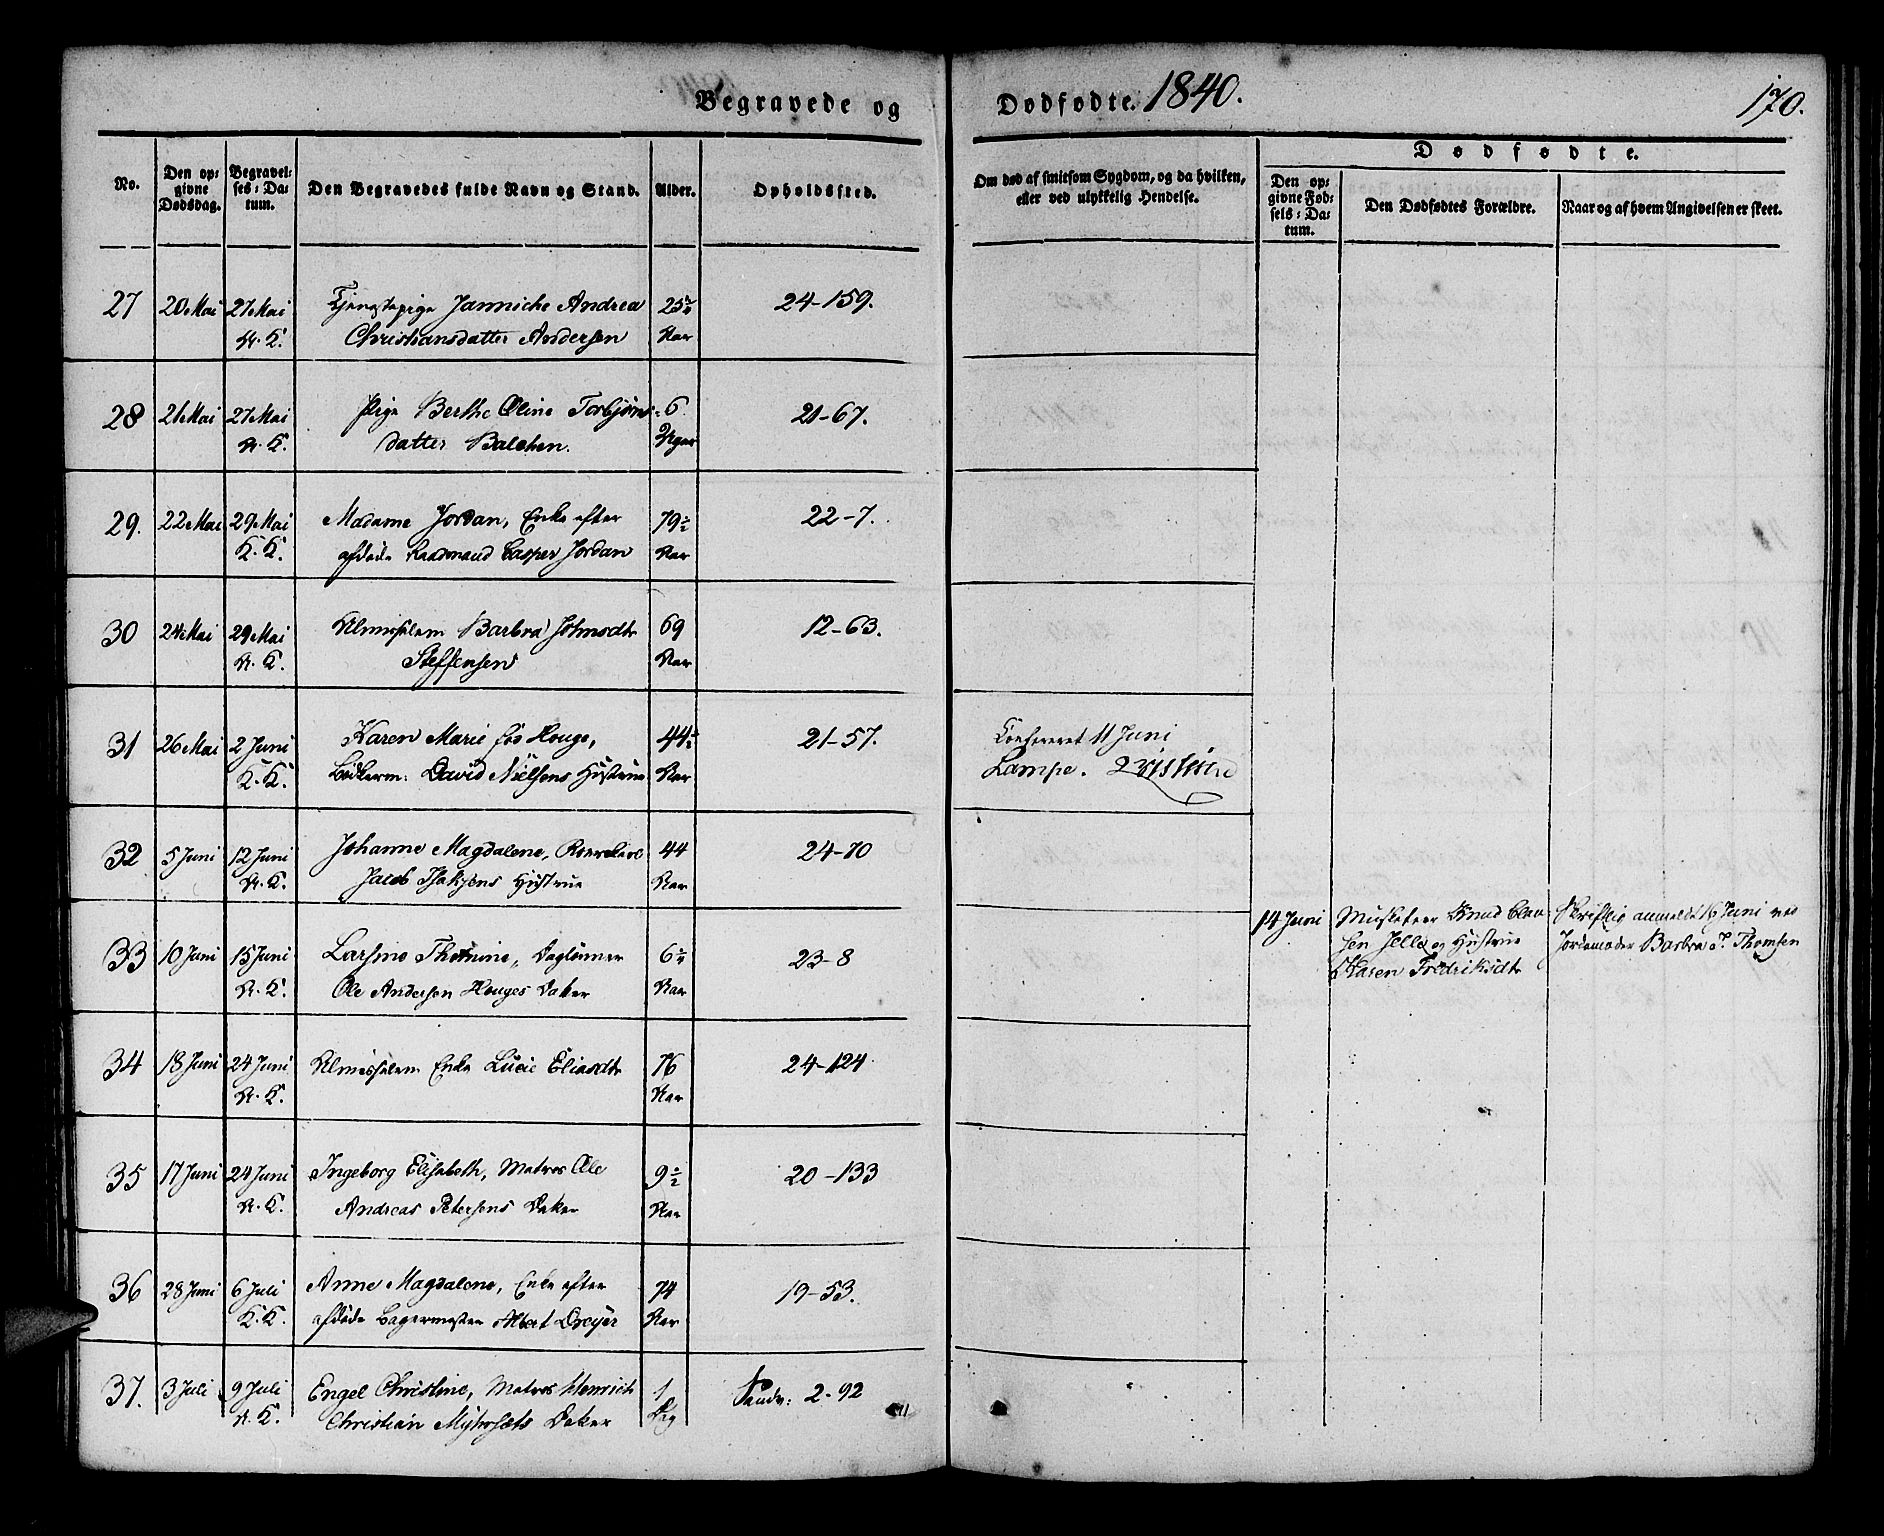 Begravede og Dødfødte. 1840. 170.
No. Den opgivne Dødsdag. Begravelses-Datum. Den Begravedes fulde Navn og Stand. Alder. Opholdssted. Om død af smitsom Sygdom, og da hvilken, eller ved ulykkelig Hendelse. Dødfødte.
Den opgivne Fødsels-Datum. Den Dødfødtes Forældre. Naar og af hvem Angivelsen er skeet.
27 20 Mai 27 Mai Tjenestepige Janniche Andrea 25½ 24-159.
N. K. Christiansdatter Andersen Aar
28 21 Mai 27 Mai Pige Berthe Oline Torbjørns- 6 21-67.
N. K. datter Balchen. Uger
29. 22 Mai 29 Mai Madame Jordan, Enke efter 79½ 22-7.
K. K. afdøde Raadmand Casper Jordan Aar
30 24 Mai 29 Mai Almisselem Barbra Johnsdtr 69 12-63.
N. K. Steffensen Aar
31 26 Mai 2 Juni Karen Marie fød Houge, 44½ 21-57. Confereret 11 Juni
K. K. Bødkerm: David Nielsens Hustrue Aar Lampe.
32 5 Juni 12 Juni Johanne Magdalene, 44 24-70
N. K. Jacob Isaksens Hustrue Aar
33 10 Juni 15 Juni Larsine Thomine, Daglønner 6½ 23-8
N. K. Ole Andersen Houges Datter Aar
14 Juni Musketeer Knud Clau-
sen Jelle og Hustrue
Karen Fredriksdtr
Skriftlig anmeldt 16 Juni ved
Jordemoder Barbra S. Thomsen
34 18 Juni 24 Juni Almisselem Enke Lucie Eliasdtr 76 24-124
N. K. Aar
35 17 Juni 24 Juni Ingeborg Elisabeth, Matros Ole 9½ 20-133
N. K. Andreas Petersens Datter Aar
36 28 Juni 6 Juli Anne Magdalene, Enke efter 74 19-53.
K. K. afdøde Bagermester Albert Dreyer Aar
37. 3 Juli 9 Juli Engel Christine, Matros Henrich 1 Sandv: 2-92
N. K. Christian Myhrsæts Datter Dag